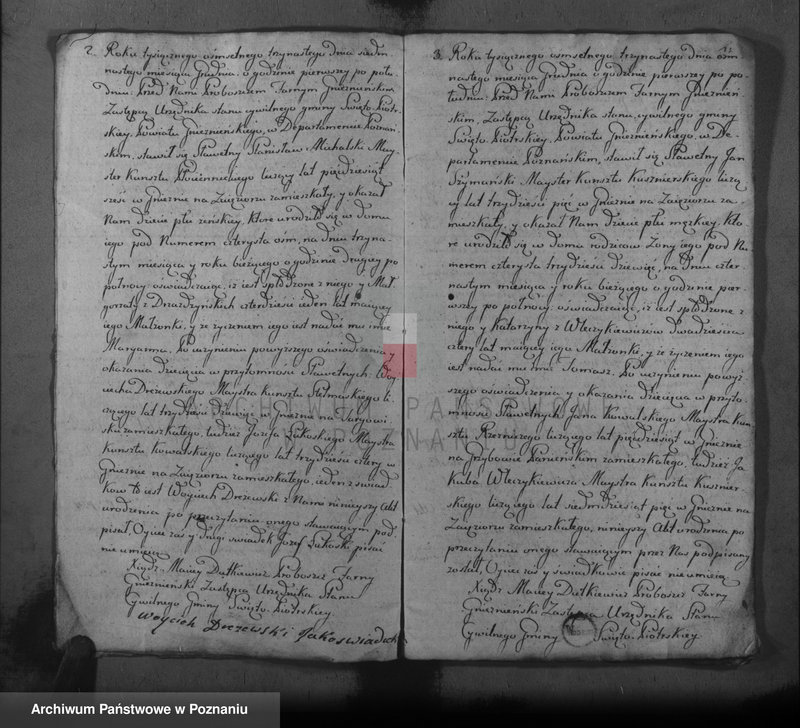 2. Roku tysiącznego osmsetnego trzynastego dnia siedm
nastego miesiąca Grudnia o godzinie pierwszy po połu-
dniu. Przed Nami Proboszczem Farnym Gnieznieńskim
Zastępcą Urzędnika stanu cywilnego gminy Święto-Piotr-
skiey, Powiatu Gnieznieńskiego, w Departamencie Poznań-
skim, stawił się Sławetny Stanisław Michalski May-
ster Kunsztu liczący lat pięcdziesiąt
sześć w Gnieznie na Zaięziorzu zamieszkały, y okazał
Nam dziecie płci zeńskiey, które urodziło się w domu
iego pod Numerem czterysta osm, na dniu trzyna-
stym miesiąca y roku bieżącego o godzinie drugiey po
pułnocy oswiadczaiąc, iz iest spłodzone z niego y Mał-
gorzaty z Drazdzyńskich czterdzieści ieden lat maiącey
iego Małżonki, y ze zyczeniem iego iest nadać mu imie
Maryanna. Po uczynieniu powyzszego oswiadczenia y
okazania dziecięcia w przytomności Sławetnych Woy-
ciecha Drezewskiego Maystra kunsztu Stelmaskiego li-
czącego lat trzydzieści dziewięc w Gnieznie na Targowi-
sku zamieszkałego, tudziez Jozefa Łukoskiego Maystra
kunsztu Kowalskiego liczącego lat trzydzieści cztery w
Gnieznie na Zaięziorzu zamieszkałego, ieden z świad-
kow to iest Woyciech Drezewski z Nami ninieyszy Akt
urodzenia po przeczytaniu onego stawaiącym pod-
pisał, Oyciec zaś y drugi swiadek Jozef Łukoski pisać
nie umieią
Xiądz Maciey Dutkiewicz Proboszcz Farny
Gnieznieński Zastępca Urzędnika Stanu
Cywilnego Gminy Swięto-Piotrskiey
Woyciech Drezewski Jako swiadek
3. Roku tysiącznego osmsetnego trzynastego dnia osm
nastego miesiąca Grudnia o godzinie pierwszy po po-
łudniu. Przed Nami Proboszczem Farnym Gnieznień-
skim, Zastępcą Urzędnika stanu cywilnego gminy
Święto-Piotrskiey, Powiatu Gnieznieńskiego, w De-
partamencie Poznańskim, stawił się Sławetny Jan
Szymański Mayster Kunsztu Kuszmierskiego liczą-
cy lat trzydzieści pięć w Gnieznie na Zaięziorzu za-
mieszkały, y okazał Nam dziecie płci męzkiey, kto-
re urodziło się w domu rodzicow Zony iego pod Nu-
merem czterysta trzydzieści dziewięc, na dniu czter-
nastym miesiąca y roku bieżącego o godzinie pier-
wszy po pułnocy, oświadczaiąc, iz iest spłodzone z
niego y Katarzyny z Wleczykiewiczów dwadzieścia
cztery lat maiącey iego Małżonki, y ze zyczeniem iego
iest nadać mu imie Tomasz. Po uczynieniu powyz-
szego oświadczenia y okazania dziecięcia w przyto-
mności Sławetnych Jana Kowalskiego Maystra Kun-
sztu liczącego lat pięcdziesiąt w Gnieznie
na zamieszkałego, tudziez Ja-
kuba Wleczykiewicza Maystra Kunsztu Kuszmier-
skiego liczącego lat siedmdziesiąt pięć w Gnieznie na
Zaięziorzu zamieszkałego, ninieyszy Akt urodzenia po
przeczytaniu onego stawaiącym przez Nas podpisany
został, Oyciec zaś y swiadkowie pisać nie umieią
Xiądz Maciey Dutkiewicz Proboszcz Farny
Gnieznieński Zastępca Urzędnika Stanu
Cywilnego Gminy Święto-Piotrskiey
ARCHIWUM PAŃSTWOWE
W POZNANIU
Archiwum Państwowe w Poznaniu